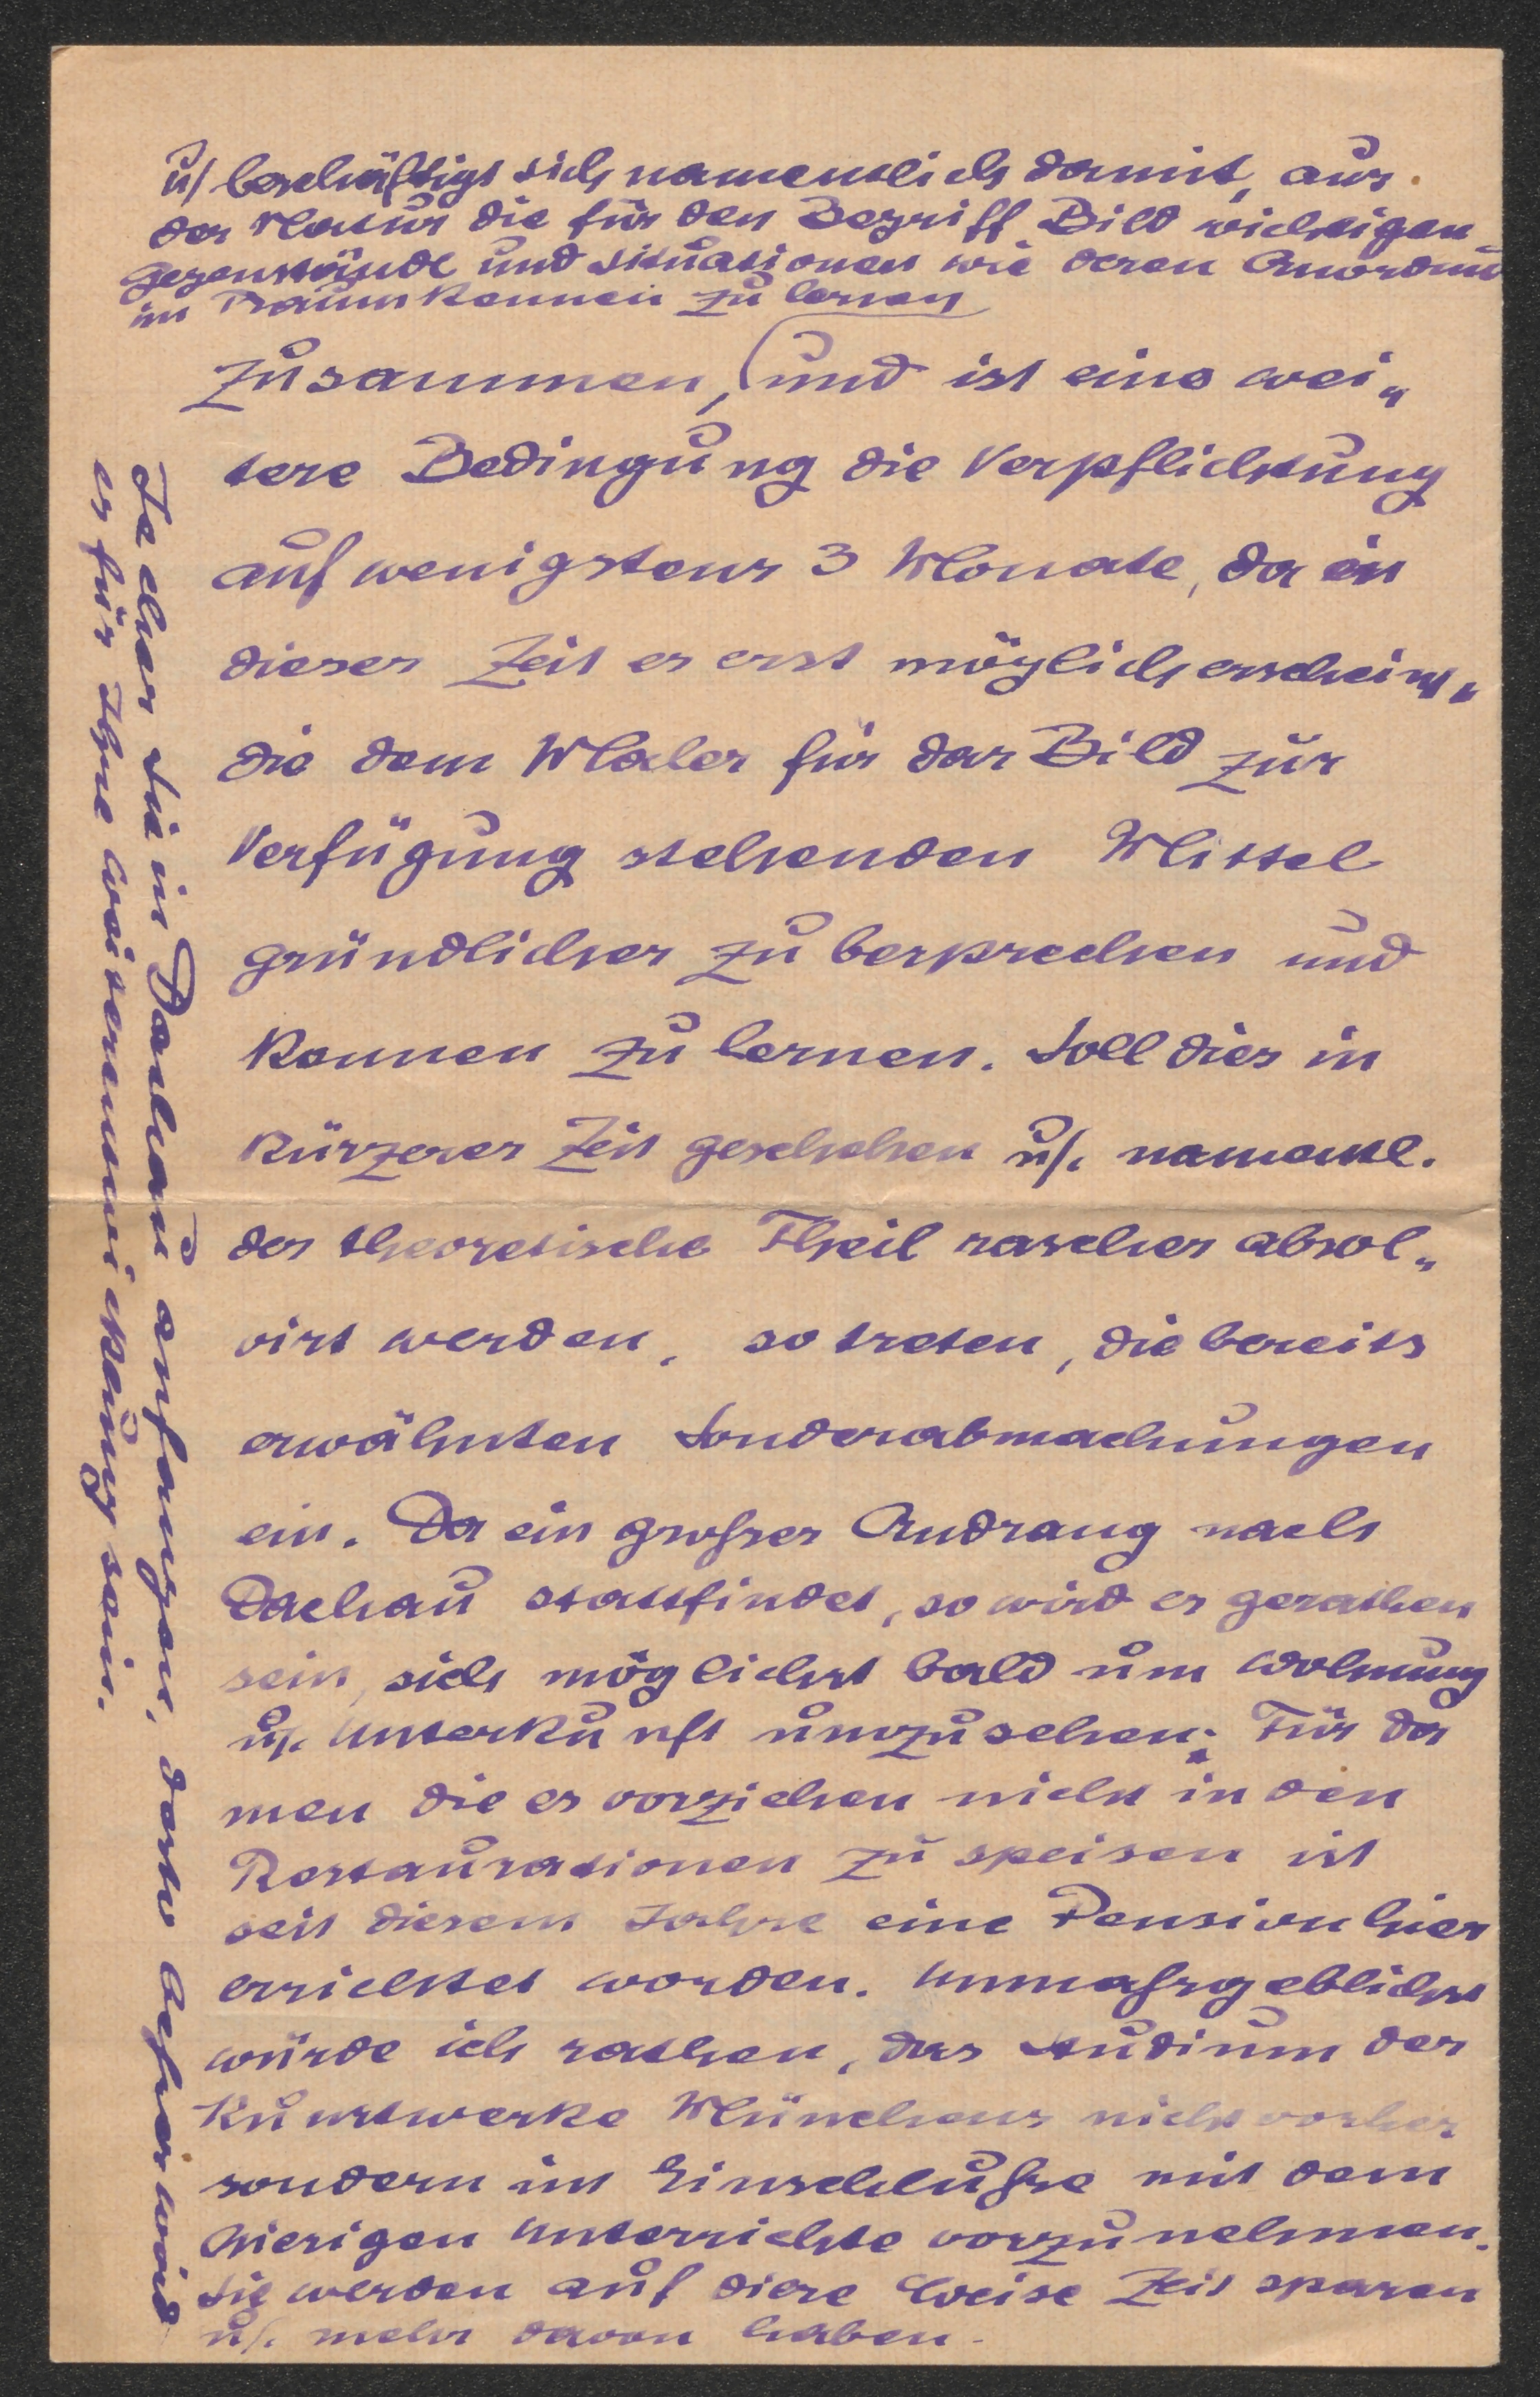 u/ beschäftigt sich namentlich damit, aus
der Natur die für den Begriff Bild wichtigen
Gegenstände und Situationen wie deren Anordnu
im Raum kennen zu lernen
zusammen, und ist eine wei„
tere Bedingung die Verpflichtung
auf wenigstens 3 Monate, da in
dieser Zeit es erst möglich erscheint,
die dem Maler für das Bild zur
Verfügung stehenden Mittel
gründlicher zu besprechen und
kennen zu lernen. Soll dies in
kürzerer Zeit geschehen u/. namentl.
der theoretische Theil rascher absol„
virt werden, so treten, die bereits
erwähnten Sonderabmachungen
ein. Da ein großer Andrang nach
Dachau stattfindet, so wird es gerathen
sein, sich möglichst bald um Wohnung
u/. Unterkunft umzusehen; Für Da
men die es vorziehen nicht in den
Restaurationen zu speisen ist
seit diesem Jahre eine Pension hier
errichtet worden. Unmaßgeblichst
würde ich rathen, das Studium der
Kunstwerke Münchens nicht vorher
sondern im Einschluße mit dem
hiesigen Unterrichte vorzunehmen.
Sie werden auf diese Weise Zeit sparen
u/. mehr davon haben.
Je eher Sie in Dachau anfangen, desto beßer wird
es für Ihre Weiterentwickelung sein.